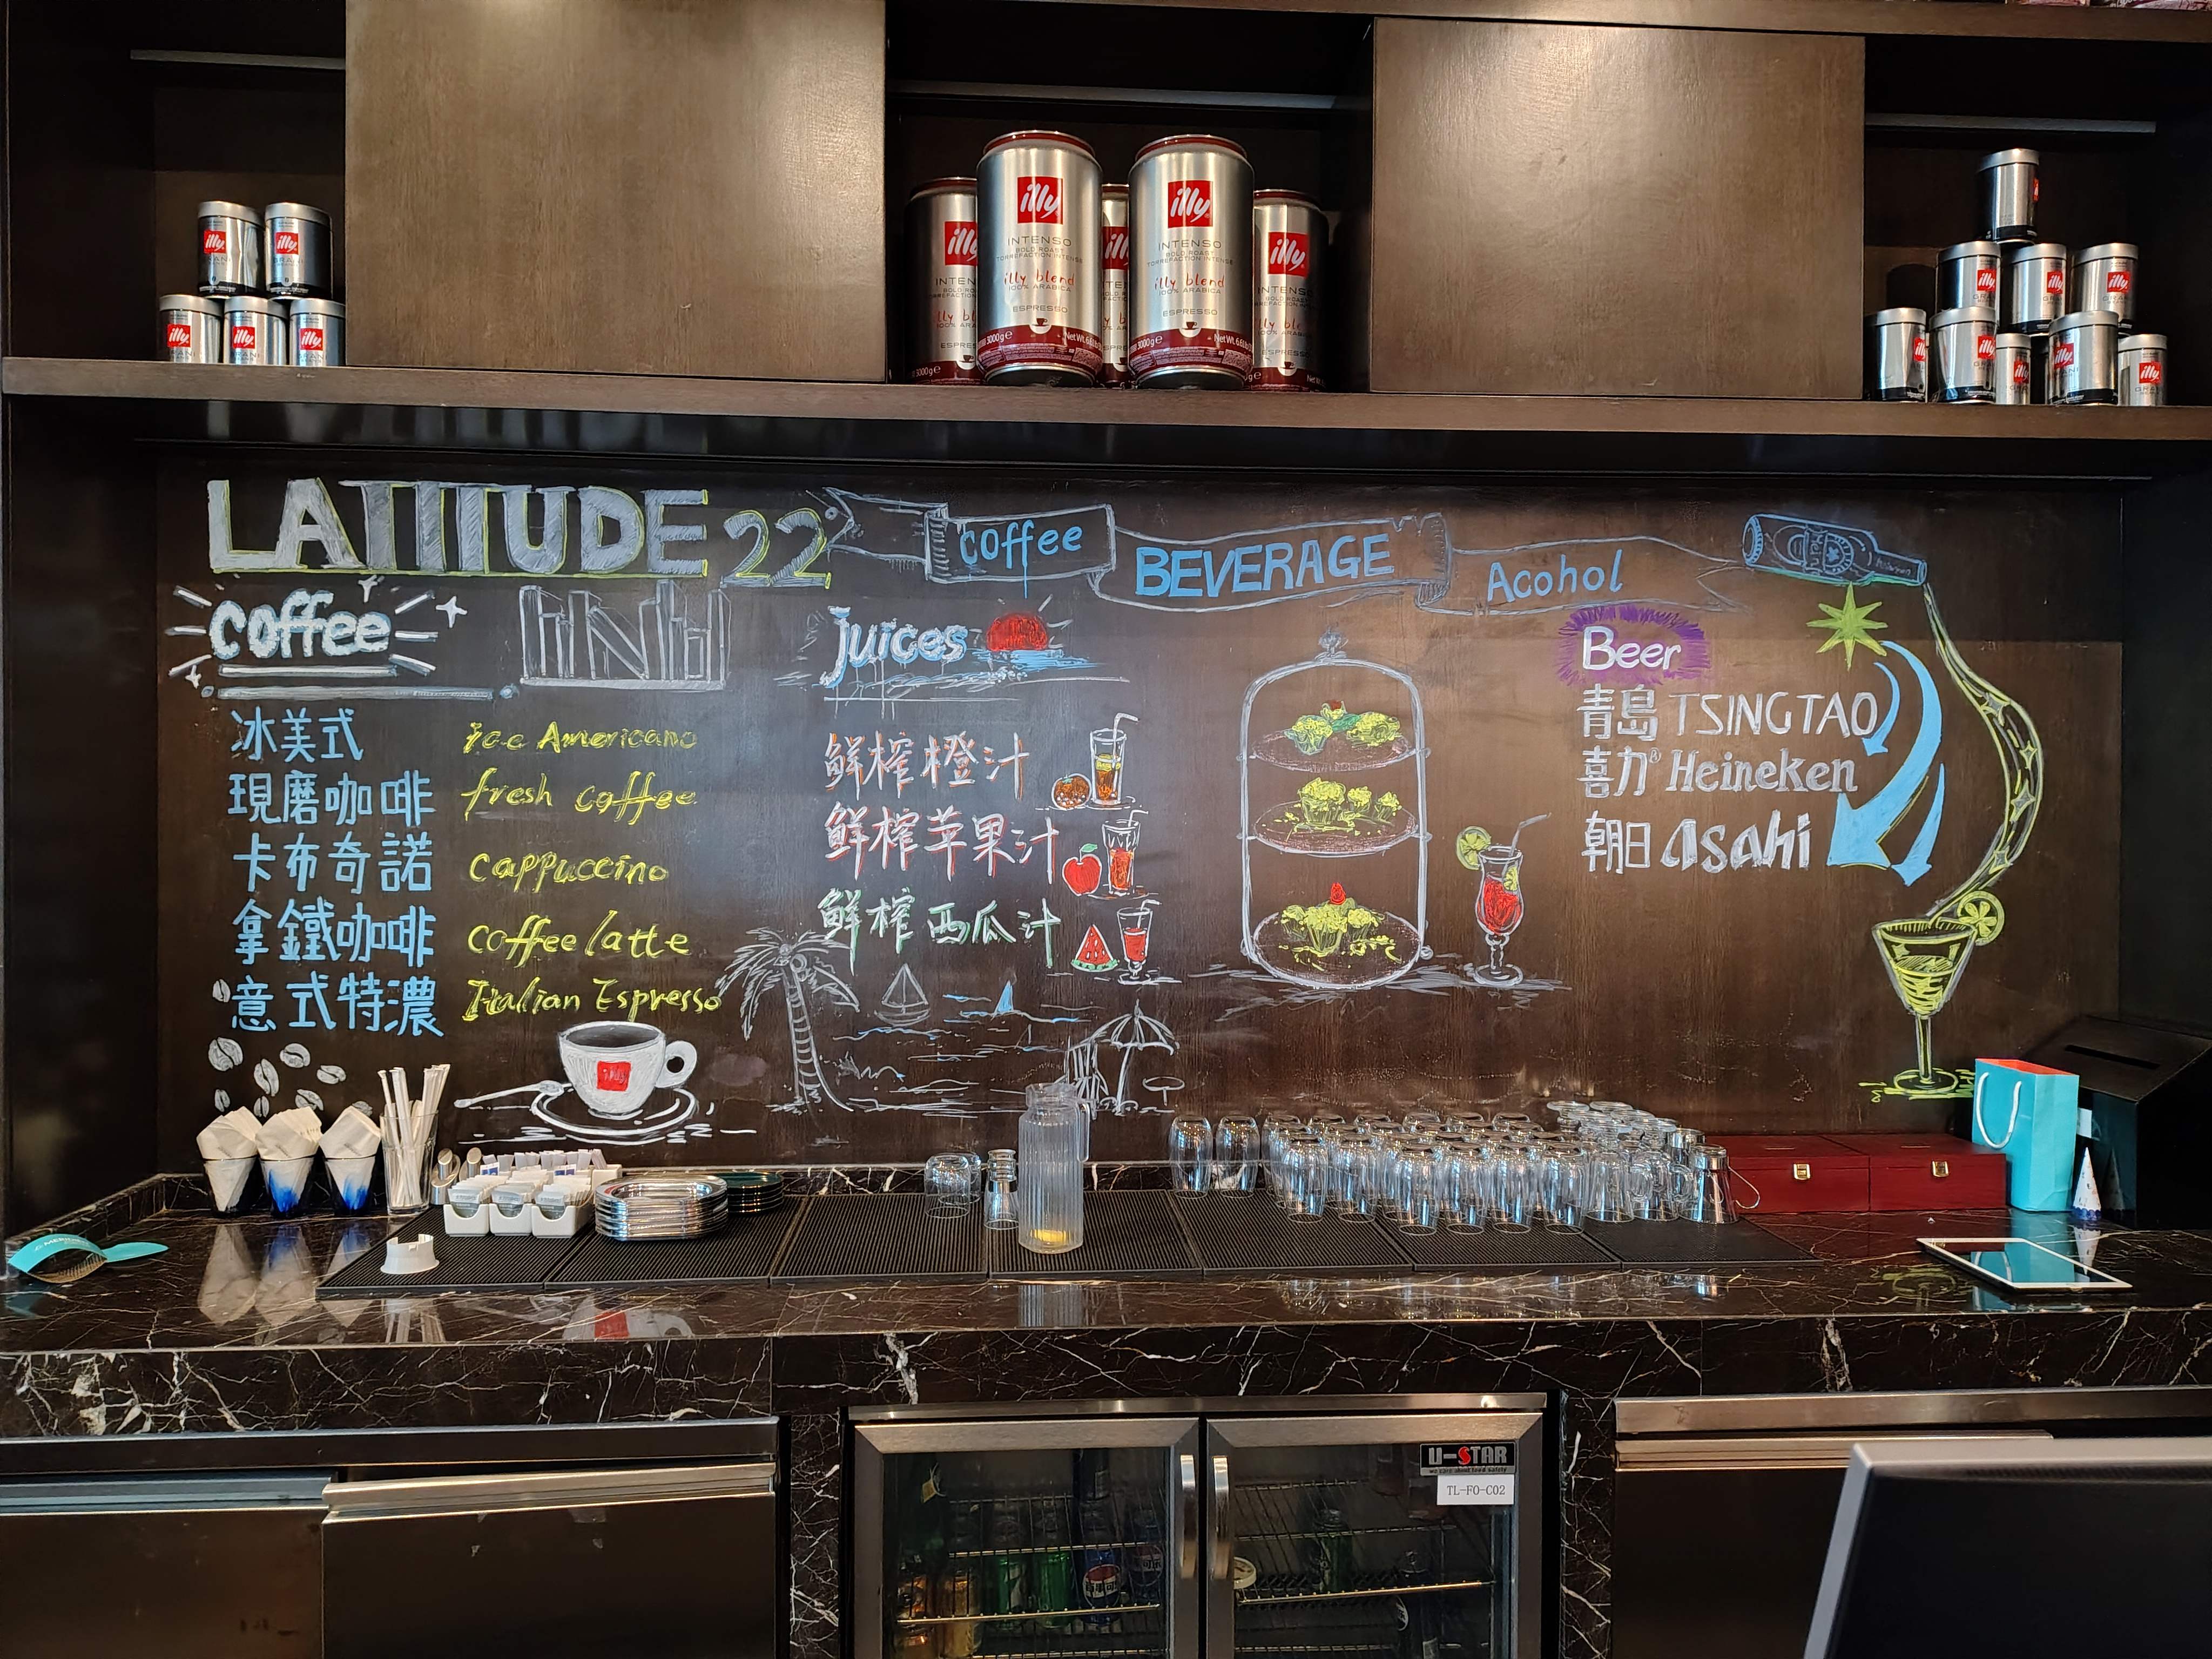 illy
illy
illy
illy
illy
illy
INTENSO
BOLD ROAST
TORREFACTION INTENSE
illy blend
100% ARABICA
ESPRESSO
3000g e
Net Wt. 6.6 lb
illy
INTENSO
BOLD ROAST
TORREFACTION INTENSE
illy blend
100% ARABICA
ESPRESSO
3000g e
illy
illy
illy
illy
illy
illy
illy
illy
LATITUDE 22
coffee
BEVERAGE
Acohol
coffee
冰美式 ice Americano
現磨咖啡 fresh coffee
卡布奇諾 cappuccino
拿鐵咖啡 coffee latte
意式特濃 Italian Espresso
illy
juices
鲜榨橙汁
鲜榨苹果汁
鲜榨西瓜汁
Beer
青島 TSINGTAO
喜力® Heineken
朝日 asahi
U-STAR
we care about food safety
TL-FO-C02